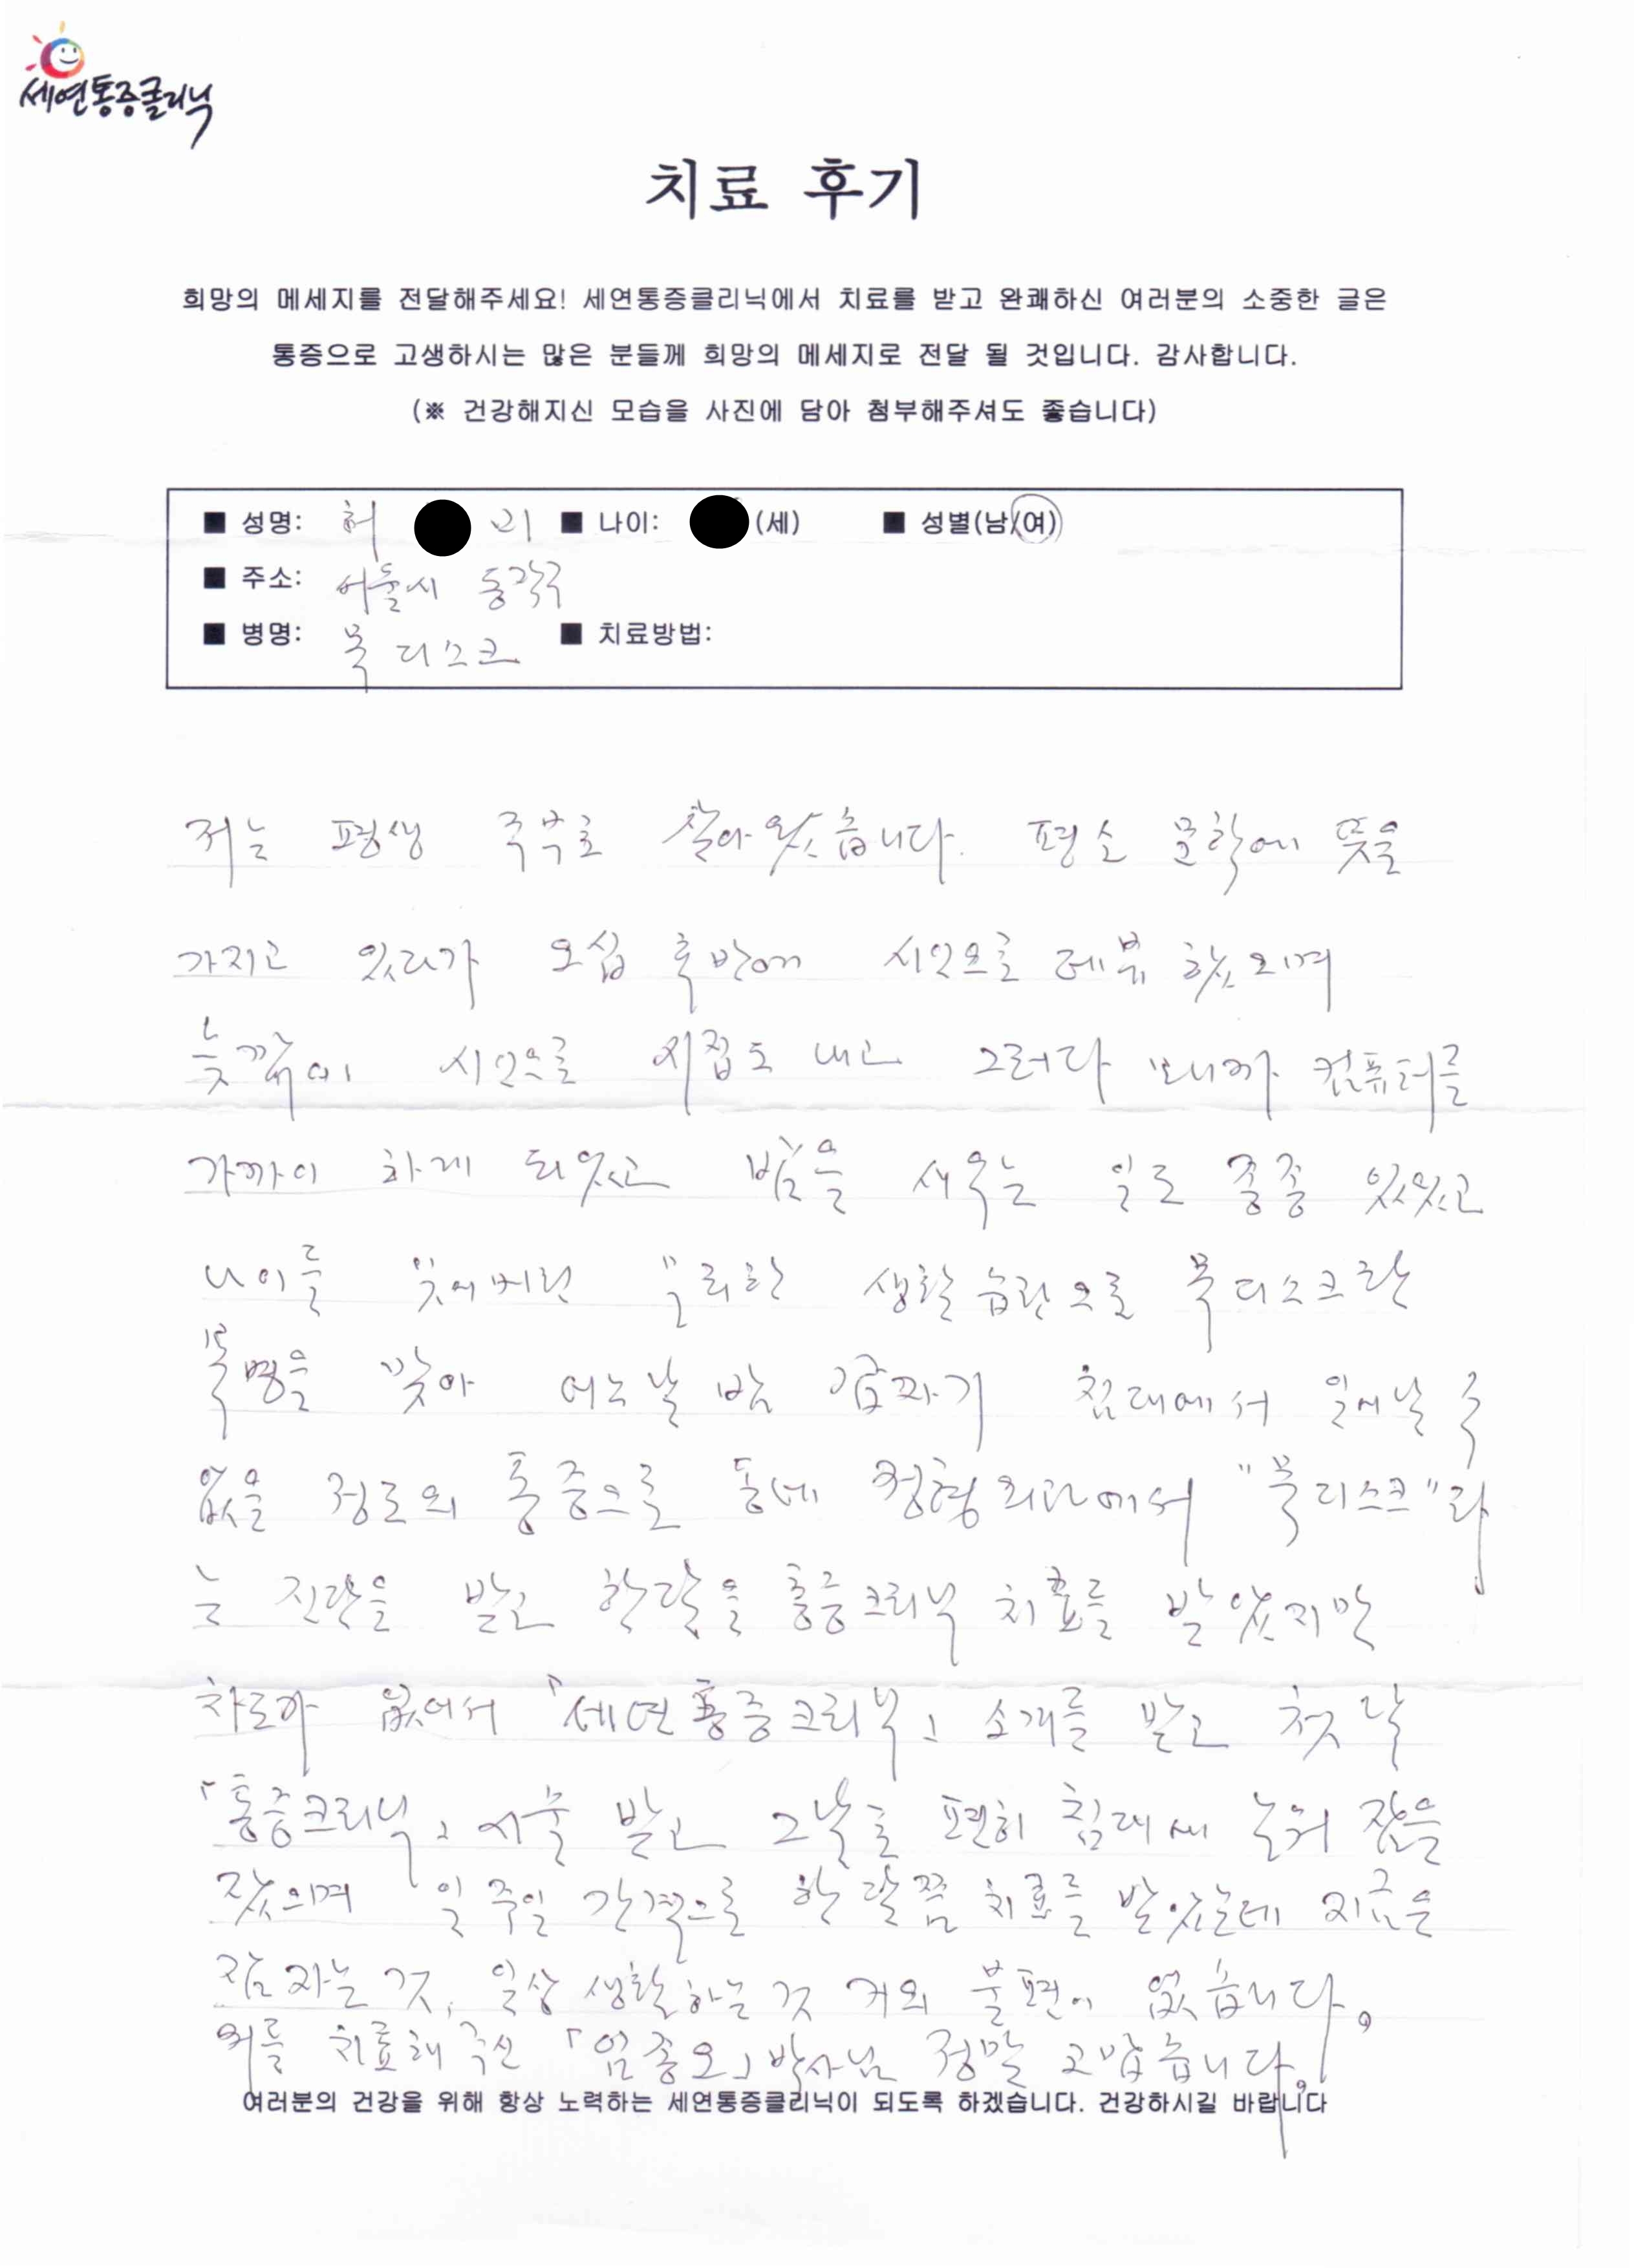 세연통증클리닉
치료 후기
희망의 메세지를 전달해주세요! 세연통증클리닉에서 치료를 받고 완쾌하신 여러분의 소중한 글은
통증으로 고생하시는 많은 분들께 희망의 메세지로 전달 될 것입니다. 감사합니다.
(※ 건강해지신 모습을 사진에 담아 첨부해주셔도 좋습니다)
■ 성명: 허 리 ■ 나이: (세) ■ 성별(남/여)
■ 주소: 서울시 동작구
■ 병명: 목 디스크 ■ 치료방법:
저는 평생 주부로 살아왔습니다. 평소 문학에 뜻을
가지고 있다가 오십 후반에 시인으로 데뷔 했으며
늦깎이 시인으로 시집도 내고 그러다 보니까 컴퓨터를
가까이 하게 되었고 밤을 새우는 일도 종종 있었고
나이를 잊어버린 무리한 생활습관으로 목디스크란
병명을 맞아 어느날 밤 갑자기 침대에서 일어날 수
없을 정도의 통증으로 동네 정형외과에서 "목디스크"라
는 진단을 받고 한달을 통증크리닉 치료를 받았지만
차도가 없어서 「세연통증크리닉」 소개를 받고 첫 날
「통증크리닉」 시술 받고 그날로 편히 침대에 누워 잠을
잤으며 일주일 간격으로 한 달쯤 치료를 받았는데 지금은
잠자는 것, 일상 생활하는 것 거의 불편이 없습니다.
저를 치료해 주신 「임종오」 박사님 정말 고맙습니다.
여러분의 건강을 위해 항상 노력하는 세연통증클리닉이 되도록 하겠습니다. 건강하시길 바랍니다